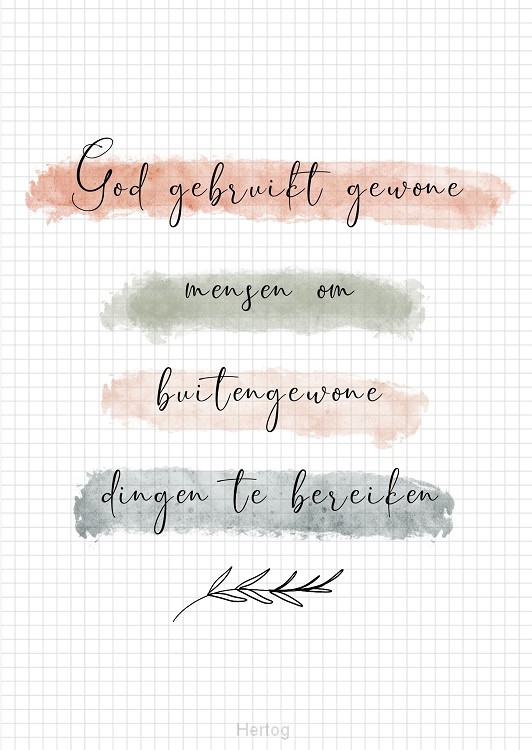 God gebruikt gewone
mensen om
buitengewone
dingen te bereiken
Hertog